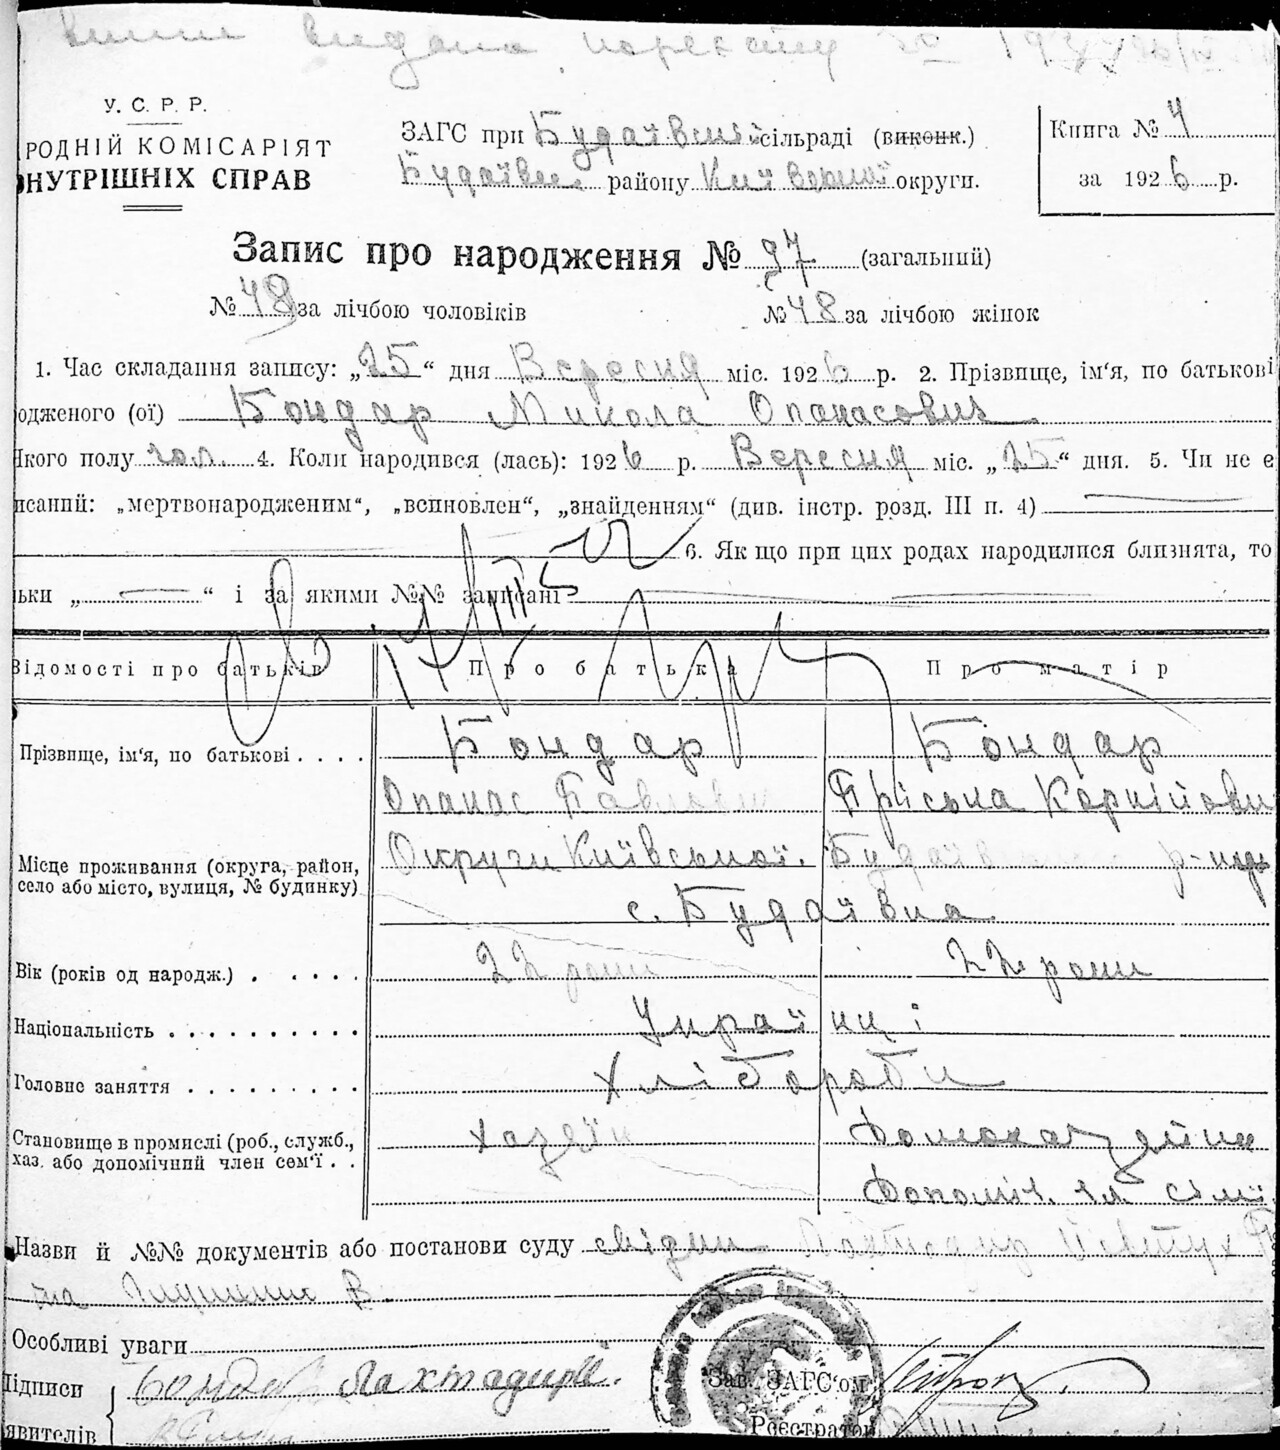 У. С. Р. Р.
РОДНІЙ КОМІСАРІЯТ
НУТРІШНІХ СПРАВ
ЗАГС при Будаївській сільраді (виконк.)
Будаївськ. району Київської округи.
Книга № 4
за 1926 р.
Запис про народження № 97 (загальний)
№ 49 за лічбою чоловіків № 48 за лічбою жінок
1. Час складання запису: „25“ дня Вересня міс. 1926 р. 2. Прізвище, ім‘я, по батькові
одженого (ої) Бондар Микола Опанасович
якого полу чол. 4. Коли народився (лась): 1926 р. Вересня міс. „25“ дня. 5. Чи не є
исаний: „мертвонародженим“, „всиновлен“, „знайденням“ (див. інстр. розд. III п. 4)
6. Як що при цих родах народилися близнята, то
ьки „ “ і за якими №№ записані
Відомості про батьків Про батька Про матір
Прізвище, ім‘я, по батькові . . . . Бондар Бондар
Опанас Павлович Пріська Корнійовн
Місце проживання (округа, район, село або місто, вулиця, № будинку) Округи Київської. Будаївськ
с. Будаївка
Вік (років од народж.) . . . . . . 22 роки 22 роки
Національність . . . . . . . . . . Українці
Головне заняття . . . . . . . . . Хлібороби
Становище в промислі (роб., служб., хаз. або допомічний член сем‘ї . . хазяїн Домохазяйка
Допоміч. чл сімї
Назви й №№ документів або постанови суду свідки
та В.
Особливі уваги
Підписи Бондар
явителів
Зав. ЗАГС‘ом
Реєстратор